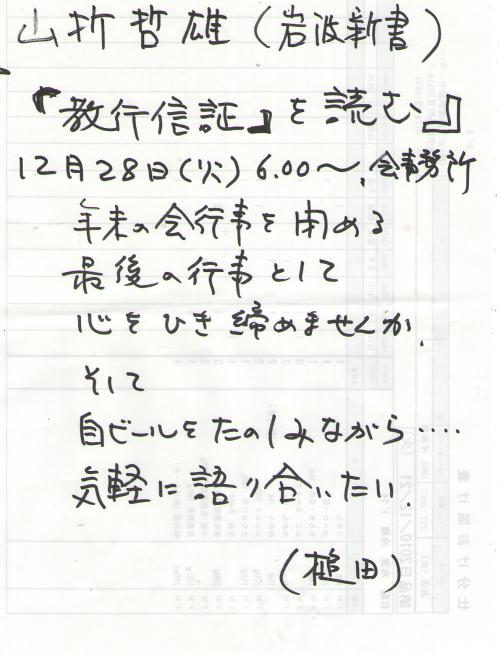 山折哲雄(岩波新書)
『「教行信証」を読む』
12月28日(火)6.00〜.会事務所
年末の会行事を閉める
最後の行事として
心をひき締めませんか.
そして
自ビールをたのしみながら‥‥
気軽に語り合いたい.
(槌田)